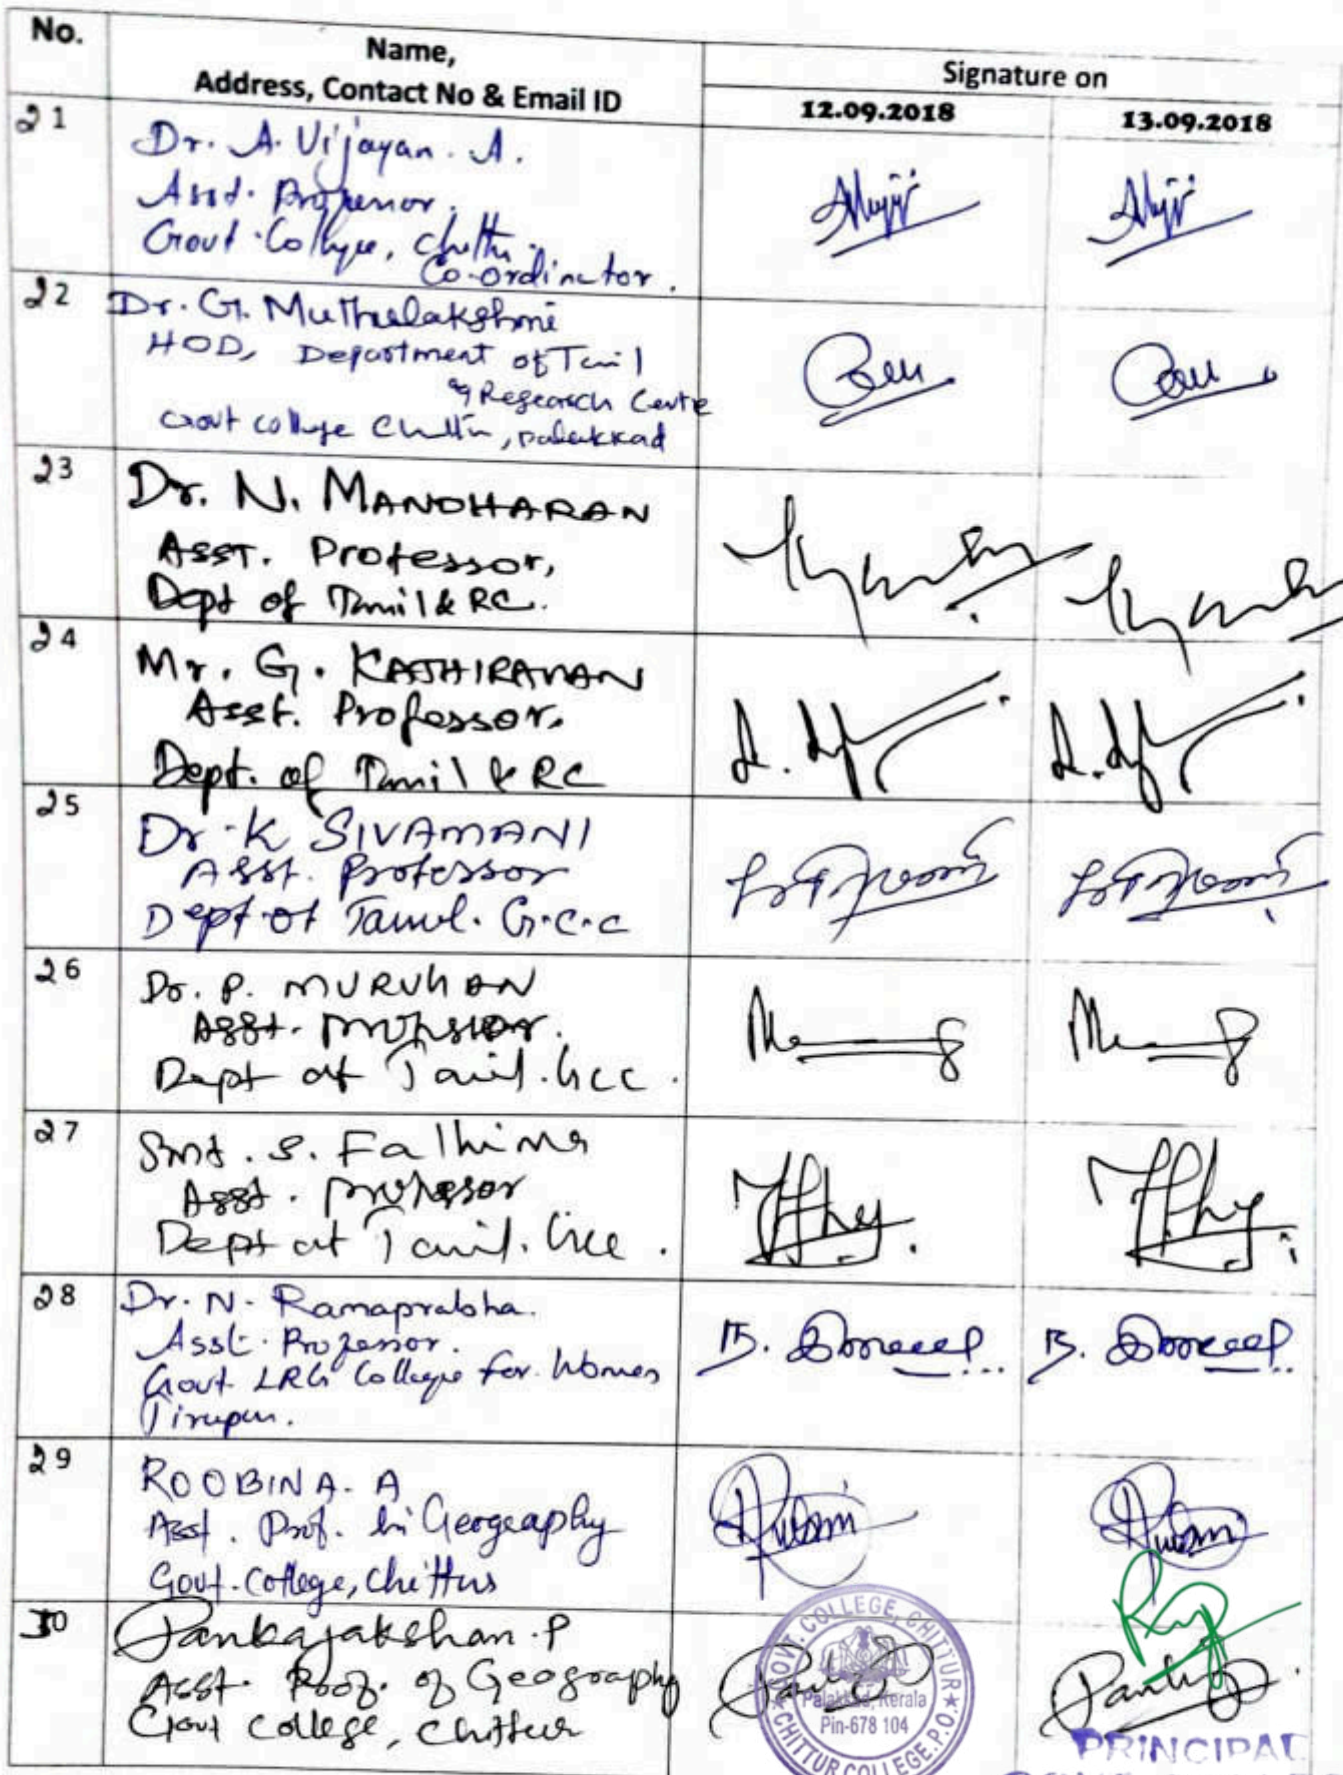 No.
Name,
Address, Contact No & Email ID
Signature on
12.09.2018
13.09.2018
21
Dr. A. Vijayan. A.
Asst. Professor.
Govt. College, Chittur.
Co-ordinator.
22
Dr. G. Muthulakshmi
HOD, Department of Tamil
& Research Centre
Govt college Chittur, palakkad
23
Dr. N. MANOHARAN
ASST. Professor,
Dept of Tamil & RC.
24
Mr. G. KATHIRAVAN
Asst. Professor.
Dept. of Tamil & RC
25
Dr. K SIVAMANI
Asst. Professor
Dept of Tamil. G.C.C
26
Dr. P. MURUHAN
Asst. professor.
Dept of Tamil. GCC.
27
Smt. S. Fathima
Asst. professor
Dept of Tamil. GCC.
28
Dr. N. Ramaprabha.
Asst. Professor.
Govt LRG College for Women
Tirupur.
29
ROOBINA. A
Asst. Prof. in Geography
Govt. College, Chittur
30
Pankajakshan. P
Asst. Prof. of Geography
Govt College, Chittur
GOVT. COLLEGE, CHITTUR
Palakkad, Kerala
Pin-678 104
CHITTUR COLLEGE.P.O.
PRINCIPAL